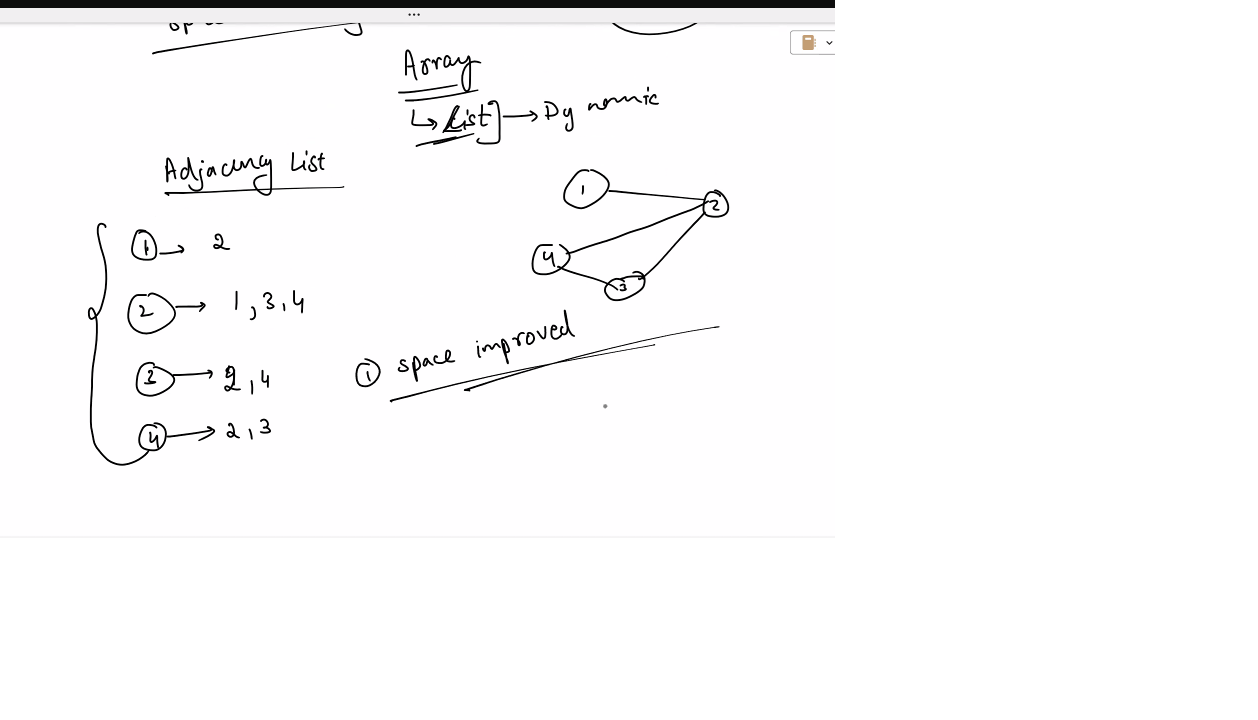 Array
↳ List] → Dynamic
Adjacency List
1 → 2
2 → 1, 3, 4
3 → 2, 4
4 → 2, 3
1
2
4
3
① space improved